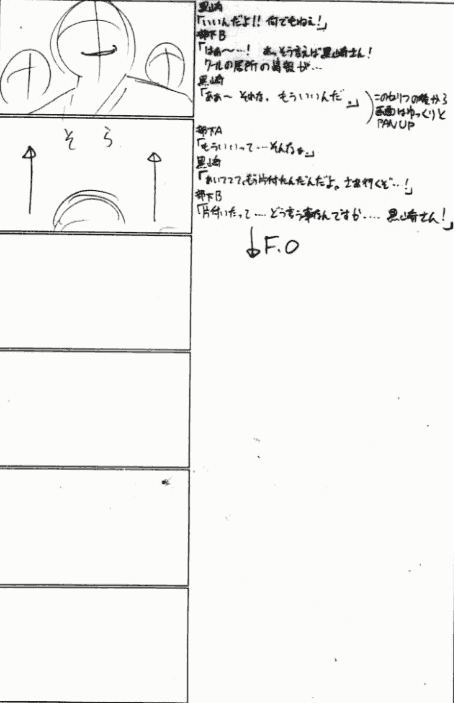 黒崎
「いいんだよ!! 何でもねぇ!」
部下B
「はぁ〜…! あ。そう言えば黒崎さん!
クールの居所の情報が…
黒崎
「あぁ〜 それな。もういいんだ。」
このセリフの後から
画面はゆっくりと
PAN UP
そら
部下A
「もういいって…そんなぁ。」
黒崎
「あいててて。もう片付たんだんだよ。さあ行くぞ…!」
部下B
「片付いたって…. どう言う事なんですか…. 黒崎さん!」
F.O